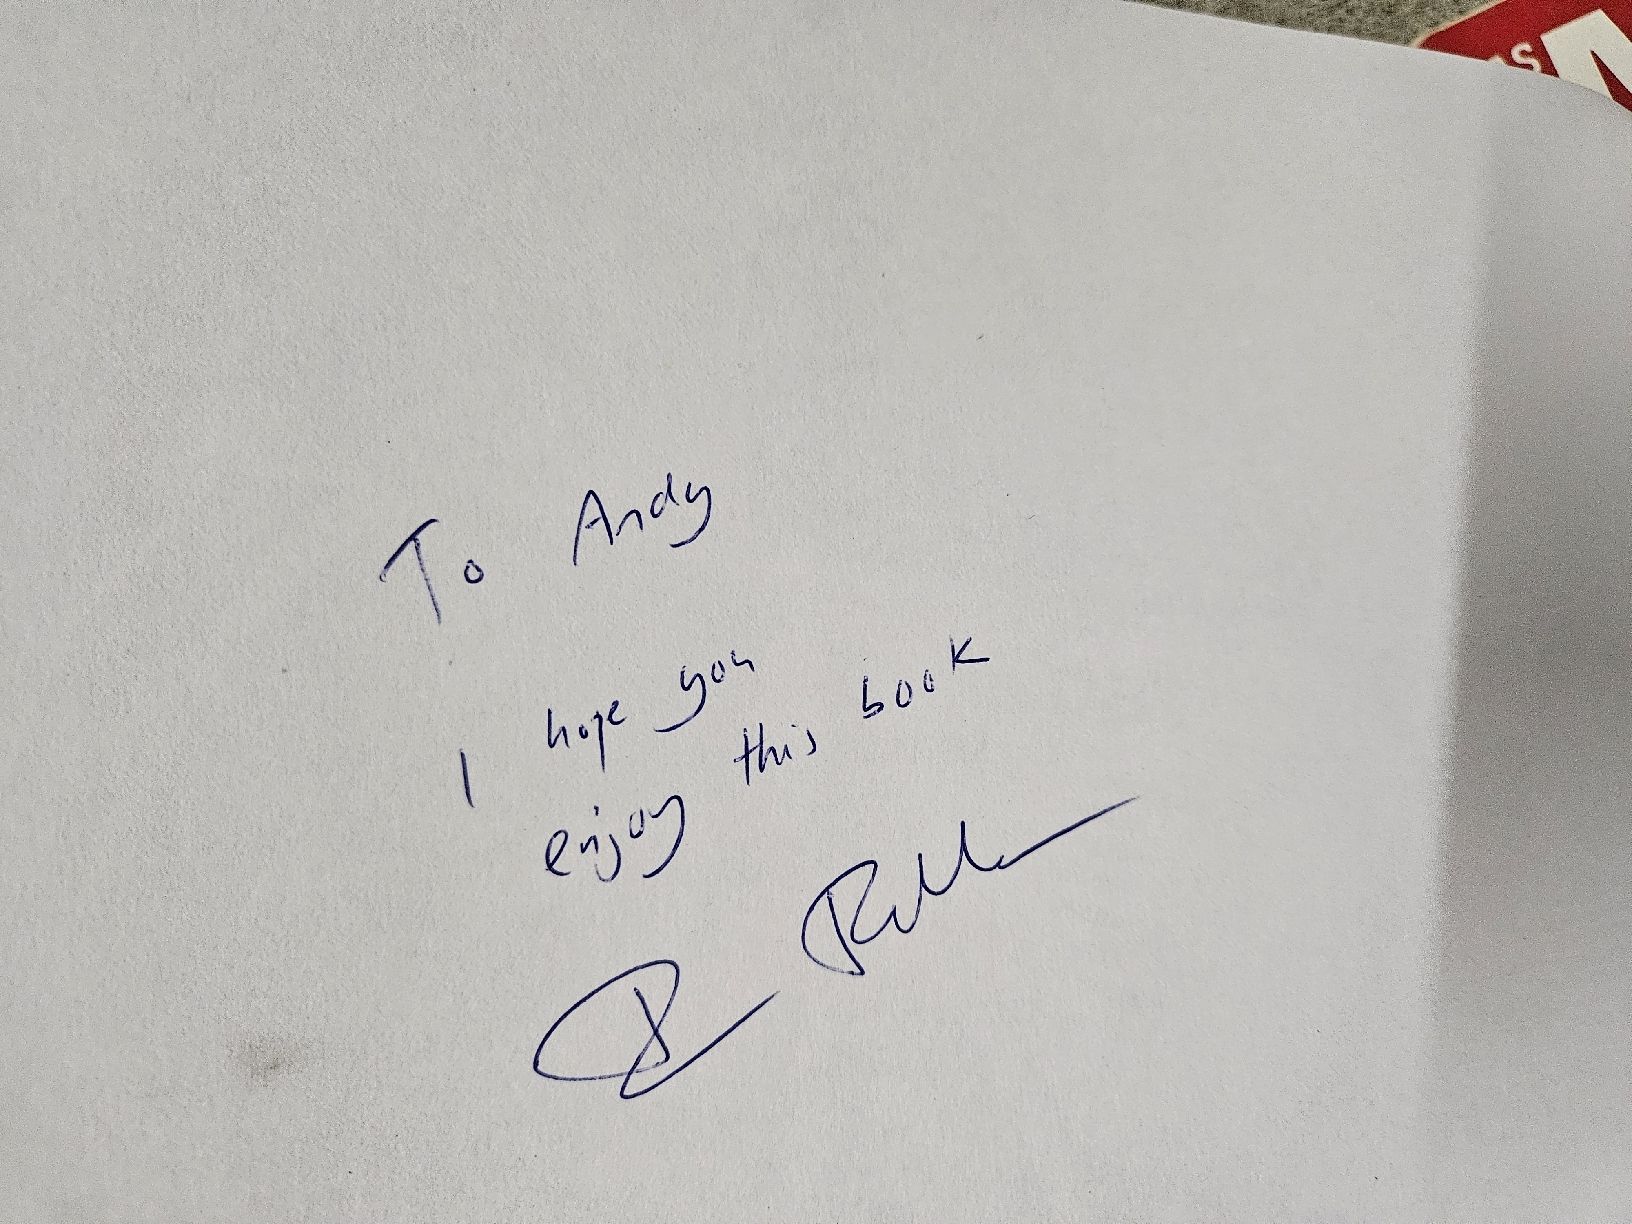 To Andy
I hope you
enjoy this book